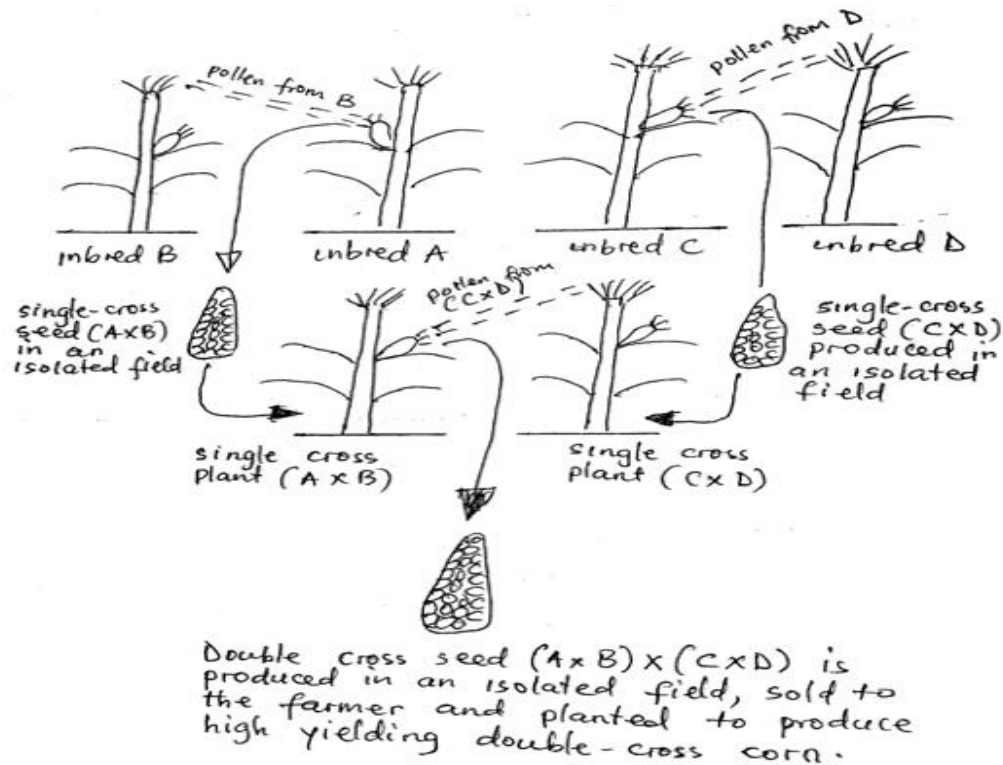 pollen from B
pollen from D
inbred B
inbred A
inbred C
inbred D
single-cross
seed (AxB)
in an
isolated field
pollen from
(CCxD)
single-cross
seed (CxD)
produced in
an isolated
field
single cross
plant (AxB)
single cross
plant (CxD)
Double cross seed (AxB) x (CxD) is
produced in an isolated field, sold to
the farmer and planted to produce
high yielding double-cross corn.